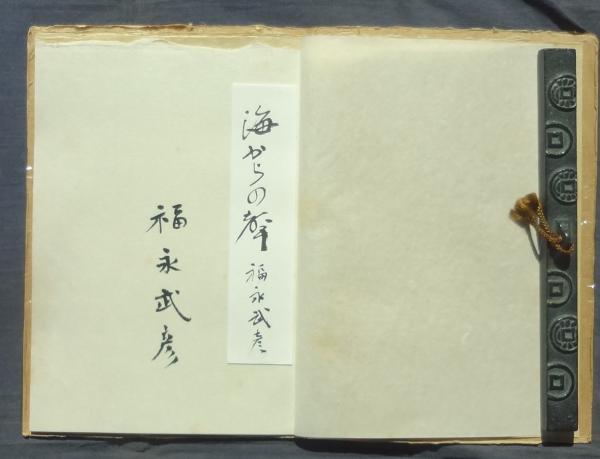 海からの聲
福永武彦
福永武彦